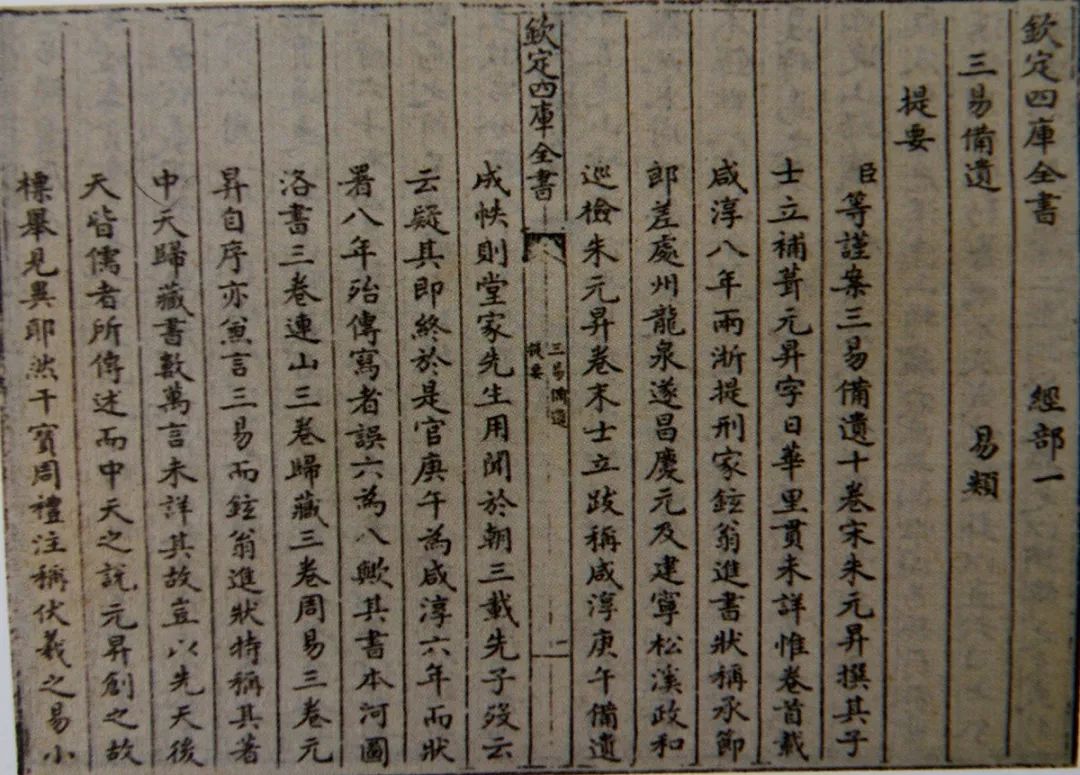 欽定四庫全書 經部一
三易備遺 易類
提要
臣等謹案三易備遺十卷宋朱元昇撰其子
士立補葺元昇字日華里貫未詳惟卷首載
咸淳八年兩浙提刑家鉉翁進書狀稱承節
郎差處州龍泉遂昌慶元及建寧松溪政和
巡檢朱元昇卷末士立跋稱咸淳庚午備遺
欽定四庫全書
三易備遺
提要
二
成帙則堂家先生用聞於朝三載先子歿云
云疑其即終於是官庚午為咸淳六年而狀
署八年殆傳寫者誤六為八歟其書本河圖
洛書三卷連山三卷歸藏三卷周易三卷元
昇自序亦兼言三易而鉉翁進狀特稱其著
中天歸藏書數萬言未詳其故豈以先天後
天皆儒者所傳述而中天之說元昇創之故
標舉見異耶然干寶周禮注稱伏羲之易小